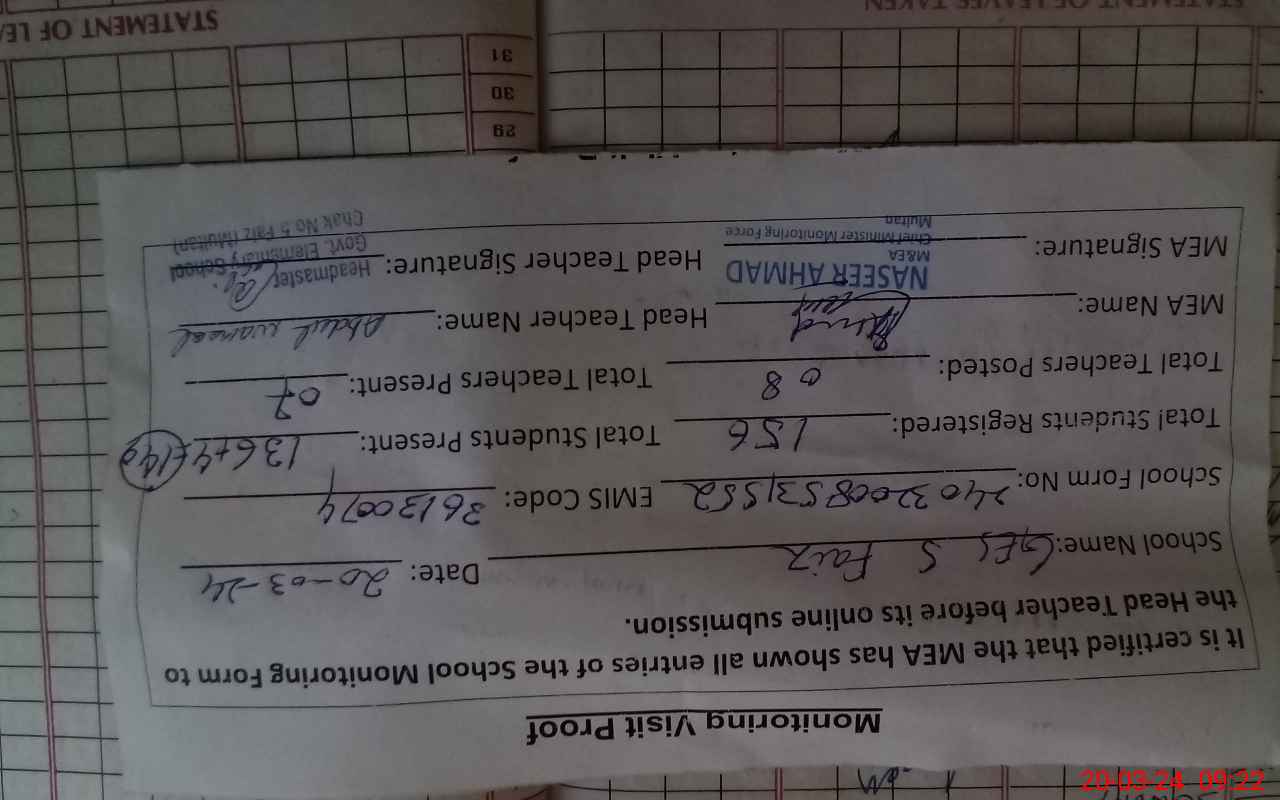 Monitoring Visit Proof
It is certified that the MEA has shown all entries of the School Monitoring Form to
the Head Teacher before its online submission.
School Name: GES 5 Faiz Date: 20-03-24
School Form No: EMIS Code: 36130074
Total Students Registered: 156 Total Students Present: 136+4=140
Total Teachers Posted: 08 Total Teachers Present: 07
MEA Name: Head Teacher Name: Abdul
NASEER AHMAD
M&EA
Chief Minister Monitoring Force
Multan
MEA Signature: Head Teacher Signature:
Headmaster
Govt. Elementary School
Chak No 5 Faiz (Multan)
29
30
31
STATEMENT OF LEA
STATEMENT OF LEAVES TAKEN
20-03-24 09:22